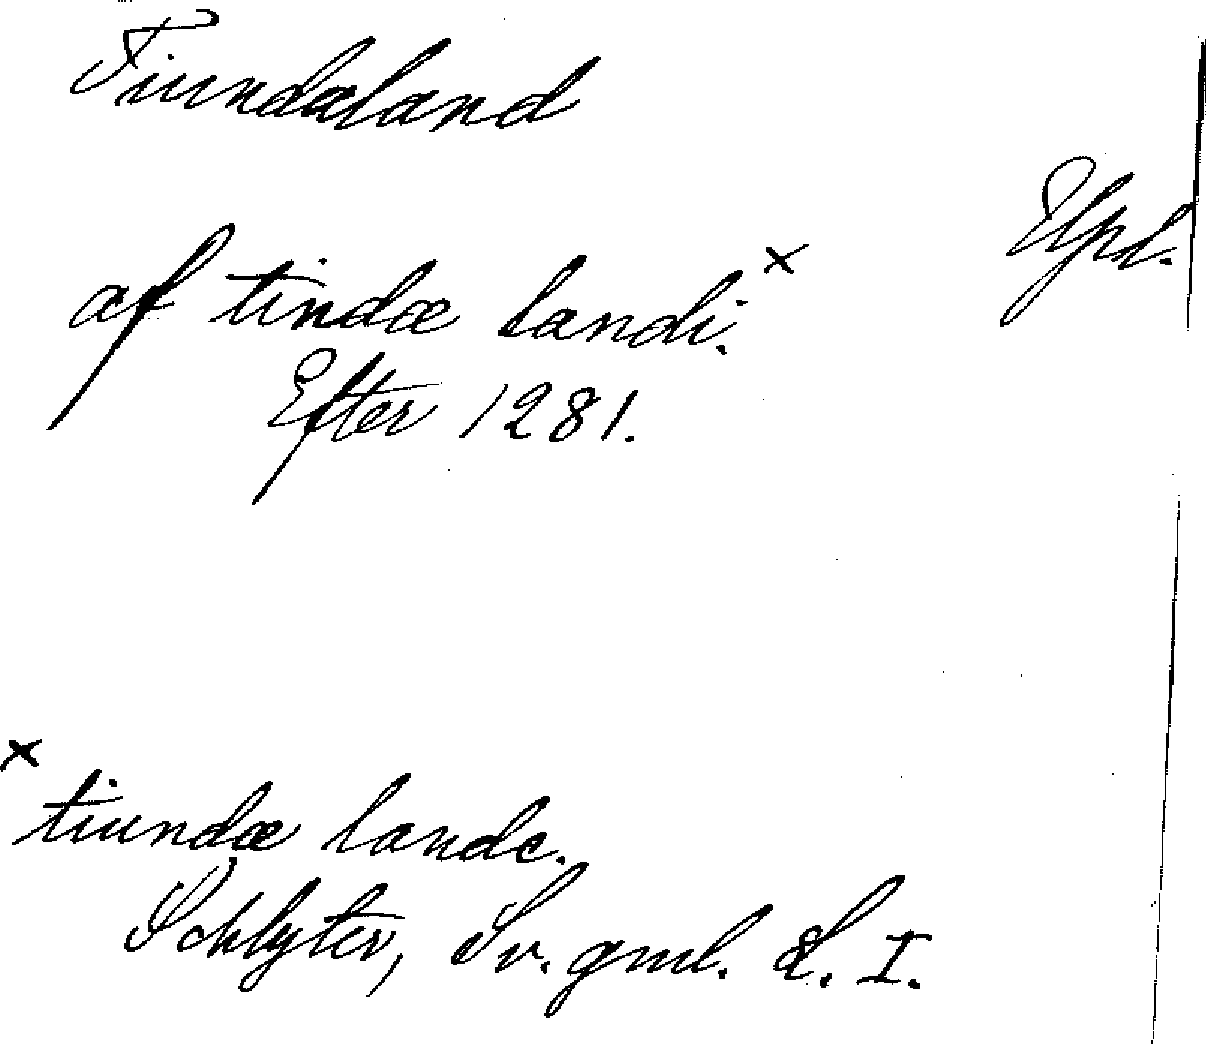 Tiundaland
Upl.
af tindæ landi.×
Efter 1281.
× tiundæ lande.
Schlyter, Sv. gml. L. I.